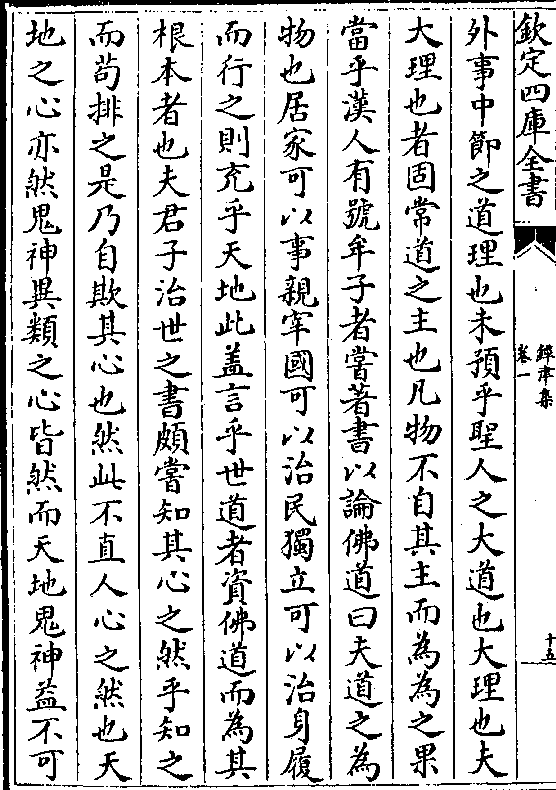 欽定四庫全書
鐔津集
卷一
十五
外事中節之道理也未預乎聖人之大道也大理也夫
大理也者固常道之主也凡物不自其主而為為之果
當乎漢人有號牟子者嘗著書以論佛道曰夫道之為
物也居家可以事親宰國可以治民獨立可以治身履
而行之則充乎天地此蓋言乎世道者資佛道而為其
根本者也夫君子治世之書頗嘗知其心之然乎知之
而苟排之是乃自欺其心也然此不直人心之然也天
地之心亦然鬼神異類之心皆然而天地鬼神益不可